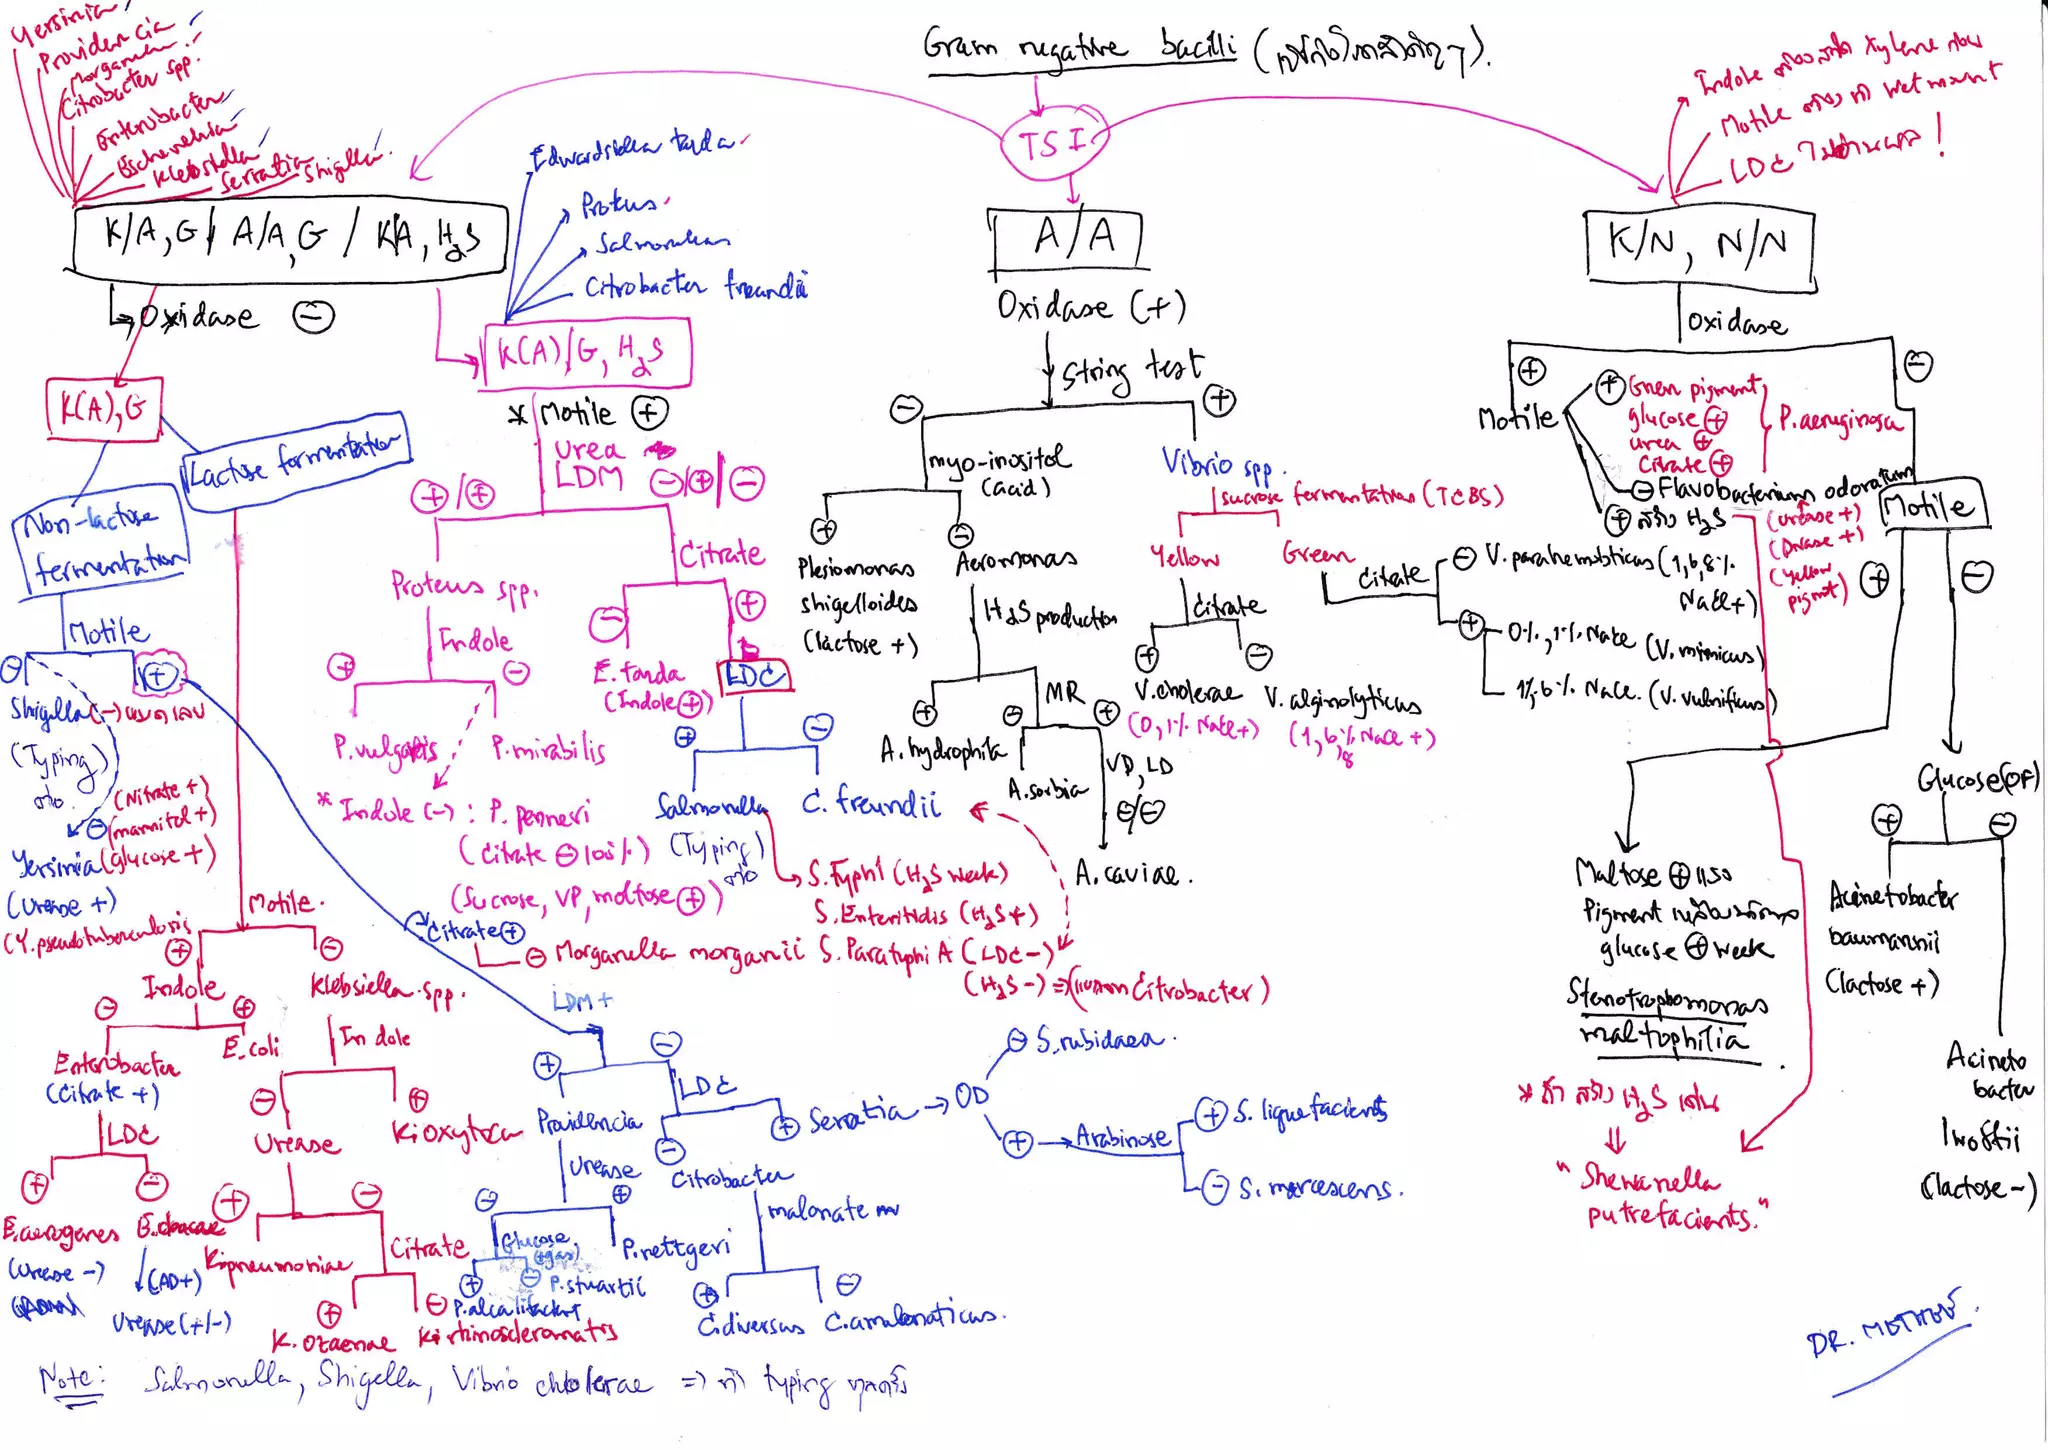 Gram negative bacilli
TSI
Yersinia
Providencia
Morganella
Citrobacter spp.
Enterobacter
Escherichia
Klebsiella
Serratia
Shigella
K/A, G / A/A, G / K/A, H2S
Oxidase ⊖
K(A), G
Lactose fermentation
Non-lactose
fermentation
Motile
⊖
⊕
Shigella (-)
(Typing)
(Nitrate +)
⊖ (mannitol +)
Yersinia (glucose +)
(Urease +)
(Y. pseudotuberculosis
Motile.
⊕
⊖
Indole
Klebsiella spp.
⊖
⊕
E. coli
Enterobacter
(Citrate +)
LDC
⊕
⊖
E. aerogenes
(urease -)
E. cloacae
(AD+)
Urease (+/-)
Indole
⊖
⊕
Urease
K. oxytoca
⊕
⊖
K. pneumoniae
Citrate
⊕
⊖
K. ozaenae
K. rhinoscleromatis
Edwardsiella tarda
Proteus
Salmonellas
Citrobacter freundii
K(A)/G, H2S
* Motile ⊕
Urea
LDM
⊕/⊕
⊖/⊕/⊖
Proteus spp.
Indole
⊕
⊖
P. vulgaris
P. mirabilis
* Indole (-) : P. penneri
(Citrate ⊖ 100%)
(Sucrose, VP, maltose ⊕)
Citrate
⊖
⊕
E. tarda
(Indole ⊕)
LDC
⊕
⊖
Salmonella
(Typing)
C. freundii
S. Typhi (H2S week)
S. Enteritidis (H2S +)
S. Paratyphi A (LDC -)
(H2S -) ⇒ Citrobacter)
Citrate ⊕
⊖ Morganella morganii
LDM +
⊕
⊖
Providencia
LDC
Urease
⊖
⊕
Glucose
(+gas)
P. rettgeri
⊕
⊖ P. stuartii
P. alcalifaciens
⊖
⊕
Citrobacter
malonate
⊕
⊖
C. diversus
C. amalonaticus.
Serratia → OD
⊖ S. rubidaea.
⊕ → Arabinose
⊕ S. liquefacients
⊖ S. marcescens.
A/A
Oxidase (+)
String test
⊖
⊕
myo-inositol
(acid)
⊕
⊖
Plesiomonas
shigelloides
(lactose +)
Aeromonas
H2S production
⊕
⊖
A. hydrophila
MR
⊕
A. sorbia
VD, LD
⊖/⊖
A. caviae.
Vibrio spp.
sucrose fermentation (TCBS)
Yellow
Green
Citrate
⊕
⊖
V. cholerae
(0, 1% NaCl +)
V. alginolyticus
(1, 6, 8% NaCl +)
Citrate
⊖ V. parahemolyticus (1, 6, 8%
NaCl +)
⊕
0%, 1% NaCl (V. mimicus)
1%, 6% NaCl. (V. vulnificus)
Indole ต้องสกัด Xylene ก่อน
Motile ต้องทำ wet mount
LDC ไม่อ่านผล !
K/N, N/N
Oxidase
⊕
⊖
Motile
⊕ Green pigment
glucose ⊕
urea ⊕
Citrate ⊕
P. aeruginosa
⊖ Flavobacterium odoratum
(Urease +)
(DNase +)
(Yellow
pigmt)
⊕ สร้าง H2S
Motile
⊕
⊖
Maltose ⊕ แรง
Pigment
glucose ⊕ week
Stenotrophomonas
maltophilia
* ถ้า สร้าง H2S เด่น
⇓
"Shewanella
putrefacients."
Glucose (OF)
⊕
⊖
Acinetobacter
baumannii
(lactose +)
Acineto
bacter
lwoffii
(lactose -)
Note: Salmonella, Shigella, Vibrio cholerae ⇒ ทำ typing ทุกครั้ง